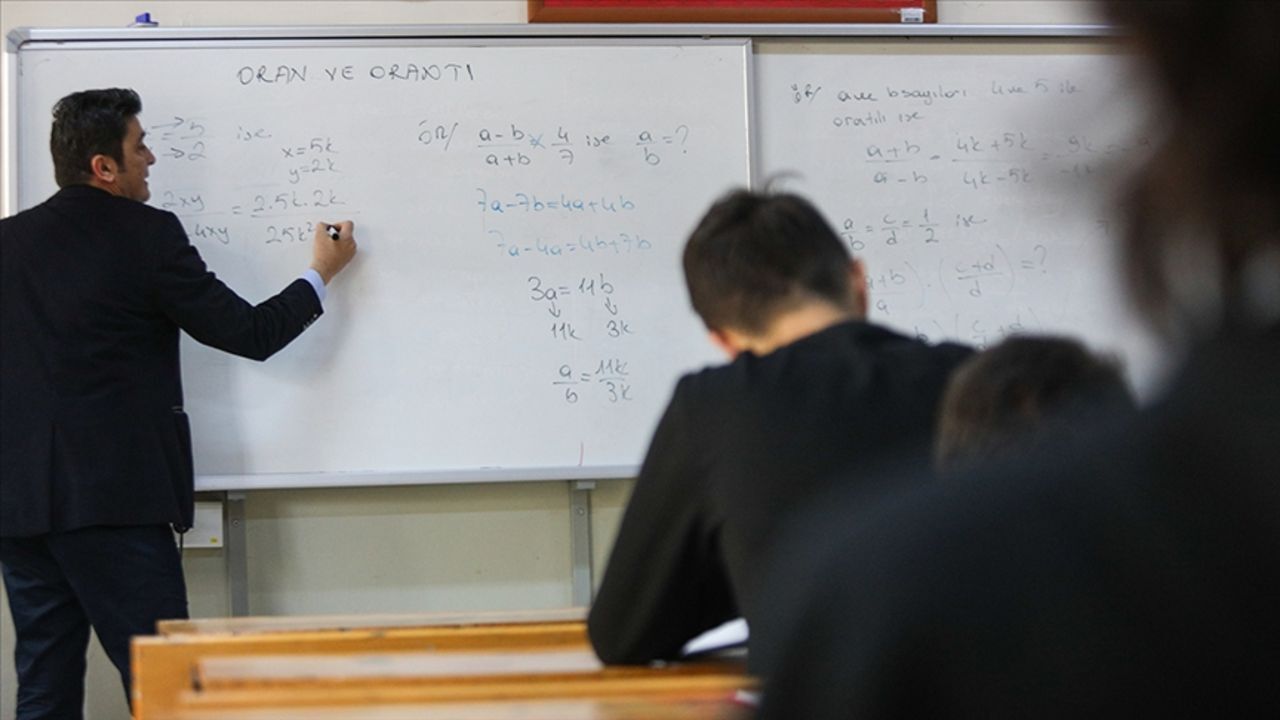 ORAN VE ORANTI
→ 5
= → 2 ise
x=5k
y=2k
2xy = 2.5k.2k
4xy 25k²
ÖR/ a-b/a+b = 4/7 ise a/b = ?
7a-7b=4a+4b
7a-4a=4b+7b
3a=11b
↓ ↓
11k 3k
a/b = 11k/3k
ÖR/ a ve b sayıları 4 ve 5 ile
orantılı ise
a+b/a-b = 4k+5k/4k-5k = 9k
a/b = c/d = 1/2 ise
(a+b/a).(c+d/d)=?